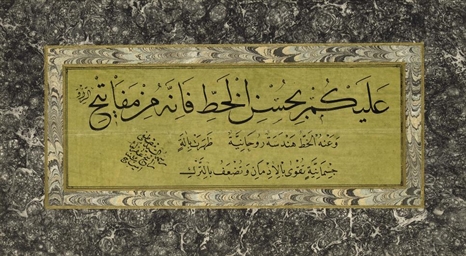 عَلَيْكُمْ بِحُسْنِ الْخَطِّ فَاِنَّهُ مِنْ مَفَاتِيحِ الرِّزْقِ
وَعَنْهُ الْخَطُّ هَنْدَسَةٌ رُوحَانِيَّةٌ ظَهَرَتْ بِاٰلَةٍ
جِسْمَانِيَّةٍ تَقْوٰى بِالْاِدْمَانِ وَتَضْعُفُ بِالتَّرْكِ